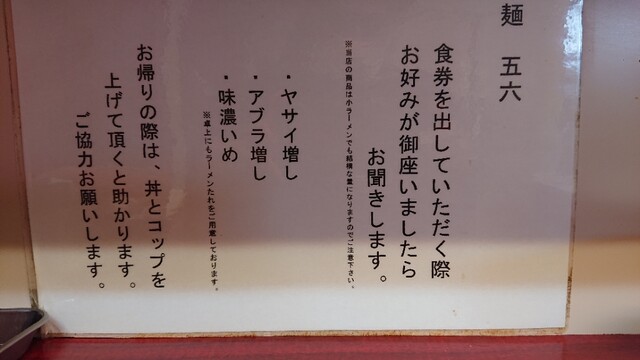 麺　五六
食券を出していただく際
お好みが御座いましたら
お聞きします。
※当店の商品は小ラーメンでも結構な量になりますのでご注意下さい。
・ヤサイ増し
・アブラ増し
・味濃いめ
※卓上にもラーメンたれをご用意しております。
お帰りの際は、丼とコップを
上げて頂くと助かります。
ご協力お願いします。